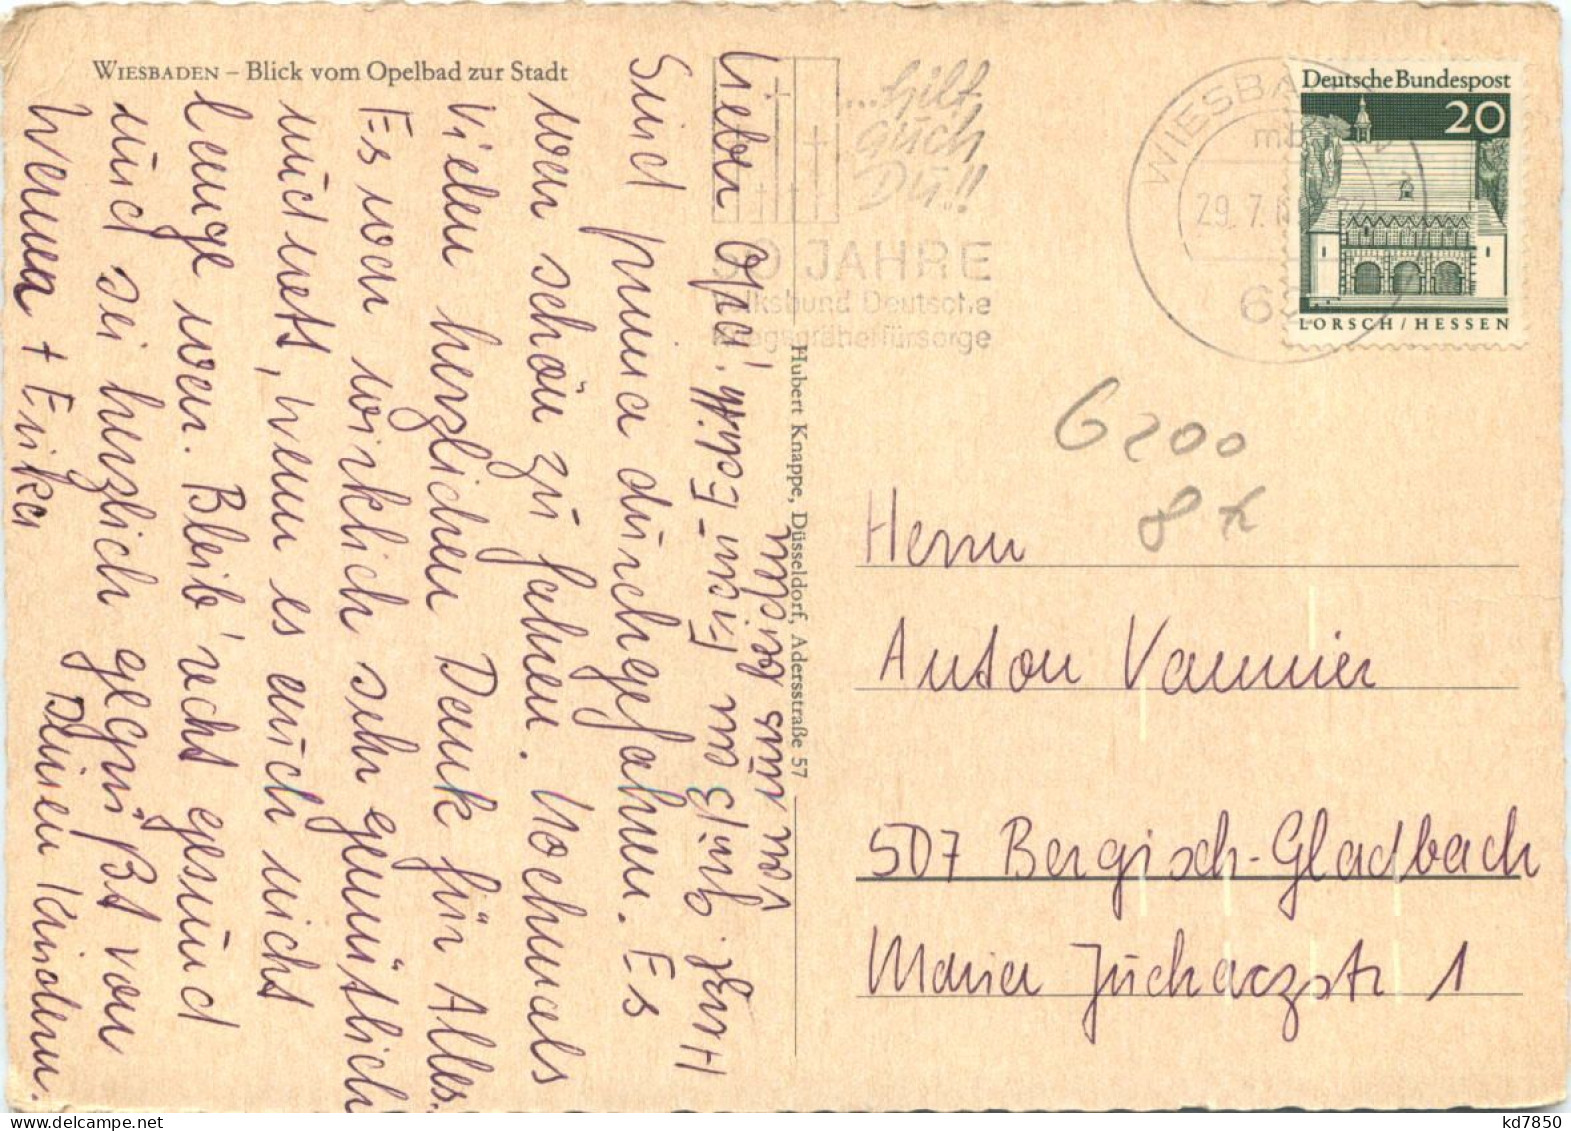 WIESBADEN – Blick vom Opelbad zur Stadt
Lieber Opa!
Sind prima durchgefahren. Es
war schön zu fahren. Nochmals
Vielen herzlichen Dank für Alles.
Es war wirklich sehr gemütlich
und nets, wenn es auch nicht
lange war. Bleib' recht gesund
und sei herzlich gegrüßt von
Deinen Kindern.
Werner + Erika
Herzl. Grüße an Frau Edith
von uns beiden
Hubert Knappe, Düsseldorf, Adersstraße 57
...hilf
auch
Du!!
50 JAHRE
Volksbund Deutsche
Kriegsgräberfürsorge
WIESBA
29.7.
62
Deutsche Bundespost
20
LORSCH/HESSEN
6200
8x
Herrn
Anton Vannier
507 Bergisch-Gladbach
Maria Juchaczstr 1
kd7850